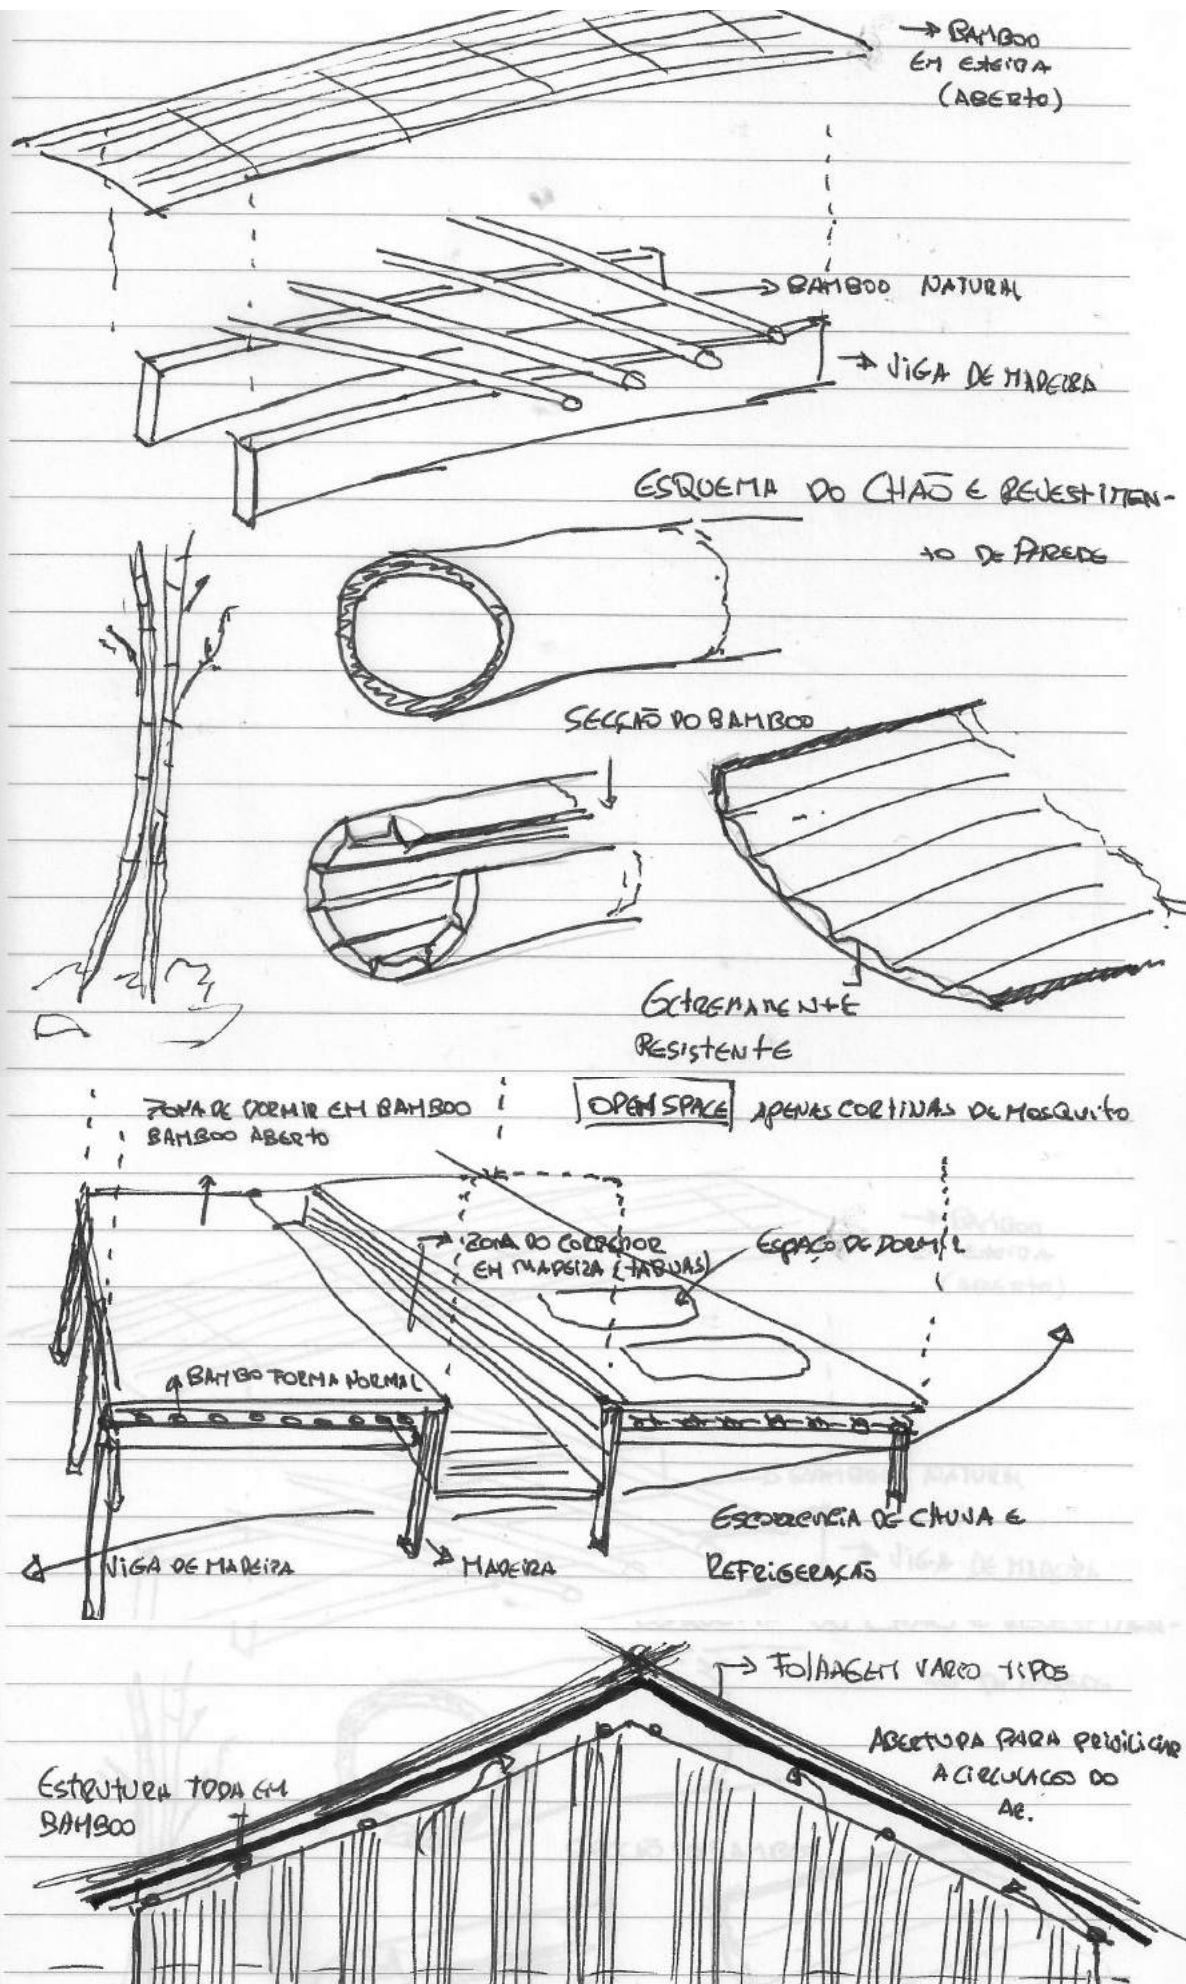 → BAMBOO
EM ESTEIRA
(ABERTO)
→ BAMBOO NATURAL
→ VIGA DE MADEIRA
ESQUEMA DO CHÃO E REVESTIMEN-
TO DE PAREDE
SECÇÃO DO BAMBOO
EXTREMAMENTE
RESISTENTE
ZONA DE DORMIR EM BAMBOO
BAMBOO ABERTO
OPEN SPACE APENAS CORTINAS DE MOSQUITO
→ ZONA DO CORREDOR
EM MADEIRA (TABUAS)
ESPAÇO DE DORMIR
BAMBO FORMA NORMAL
ESCORRENCIA DE CHUVA E
REFRIGERAÇÃO
VIGA DE MADEIRA
MADEIRA
→ FOLHAGEM VARIO TIPOS
ABERTURA PARA PRIVILIGIAR
A CIRCULACOS DO
AR.
ESTRUTURA TODA EM
BAMBOO